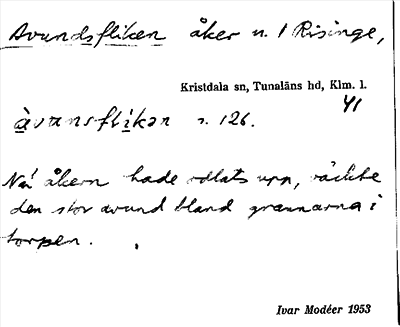 Avundsfliken åker n. 1 Risinge,
Kristdala sn, Tunaläns hd, Klm. l.
41
àvɐnsflikən s. 126.
När åkern hade odlats upp, väckte
den stor avund bland grannarna i
torpen.
Ivar Modéer 1953